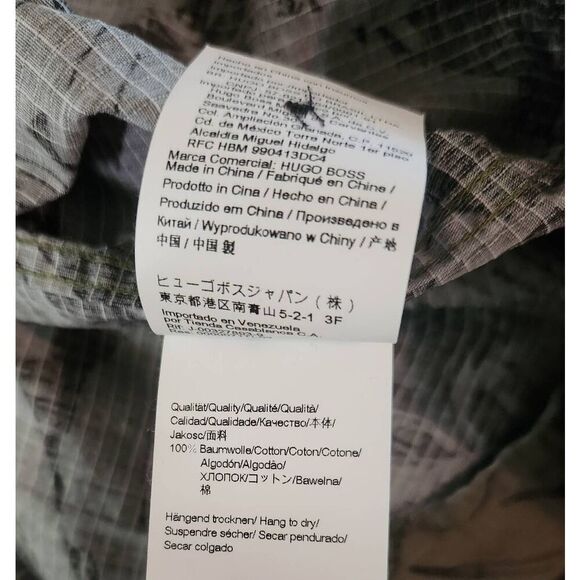 Hecho en China
Boulevard
Saavedra
Col. Ampliación Granada, C.P. 11529
Cd. de México Torre Norte 1er piso
Alcaldía Miguel Hidalgo
RFC HBM 990413DC4
Marca Comercial: HUGO BOSS
Made in China / Fabriqué en Chine /
Prodotto in Cina / Hecho en China /
Produzido em China / Произведено в
Китай / Wyprodukowano w Chiny / 产地
中国 / 中国 製
ヒューゴボスジャパン (株)
東京都港区南青山5-2-1 3F
Importado en Venezuela
por Tienda Casablanca C.A.
Rif: J-00327693-9
Qualität/Quality/Qualité/Qualità/
Calidad/Qualidade/Качество/本体/
Jakosc/面料
100% Baumwolle/Cotton/Coton/Cotone/
Algodón/Algodão/
ХЛОПОК/コットン/Bawelna/
棉
Hängend trocknen/ Hang to dry/
Suspendre sécher/ Secar pendurado/
Secar colgado